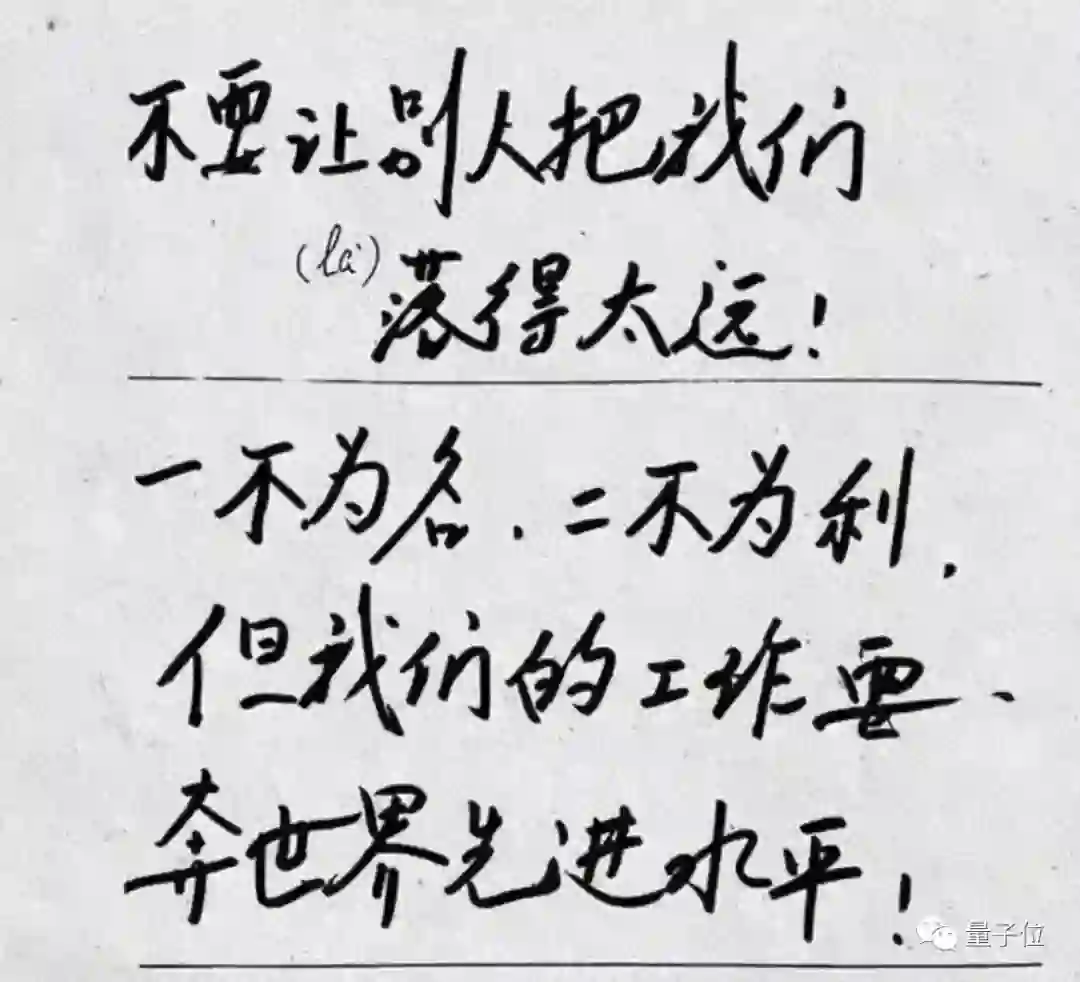 不要让别人把我们
(là)落得太远!
一不为名、二不为利,
但我们的工作要、
奔世界先进水平!
量子位